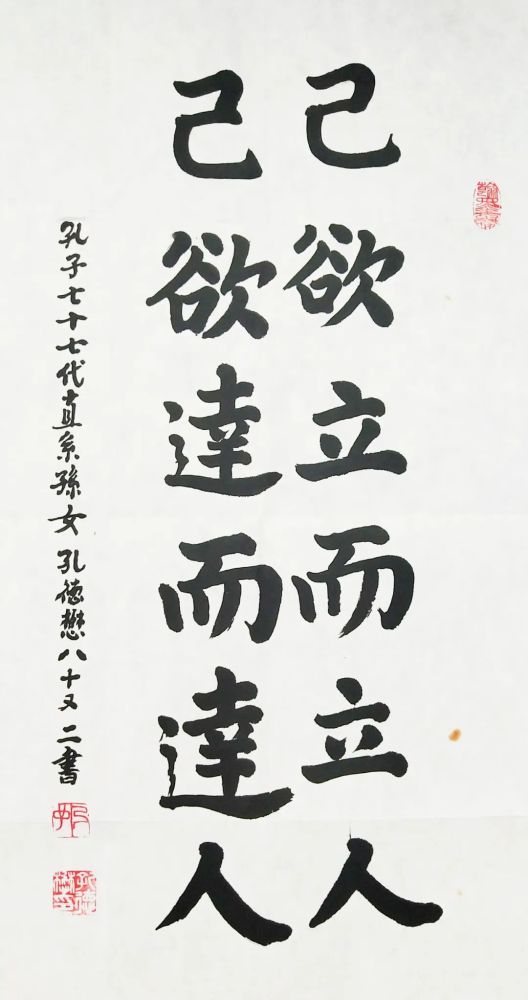 己欲立而立人
己欲達而達人
孔子七十七代直系孫女孔德懋八十又二書